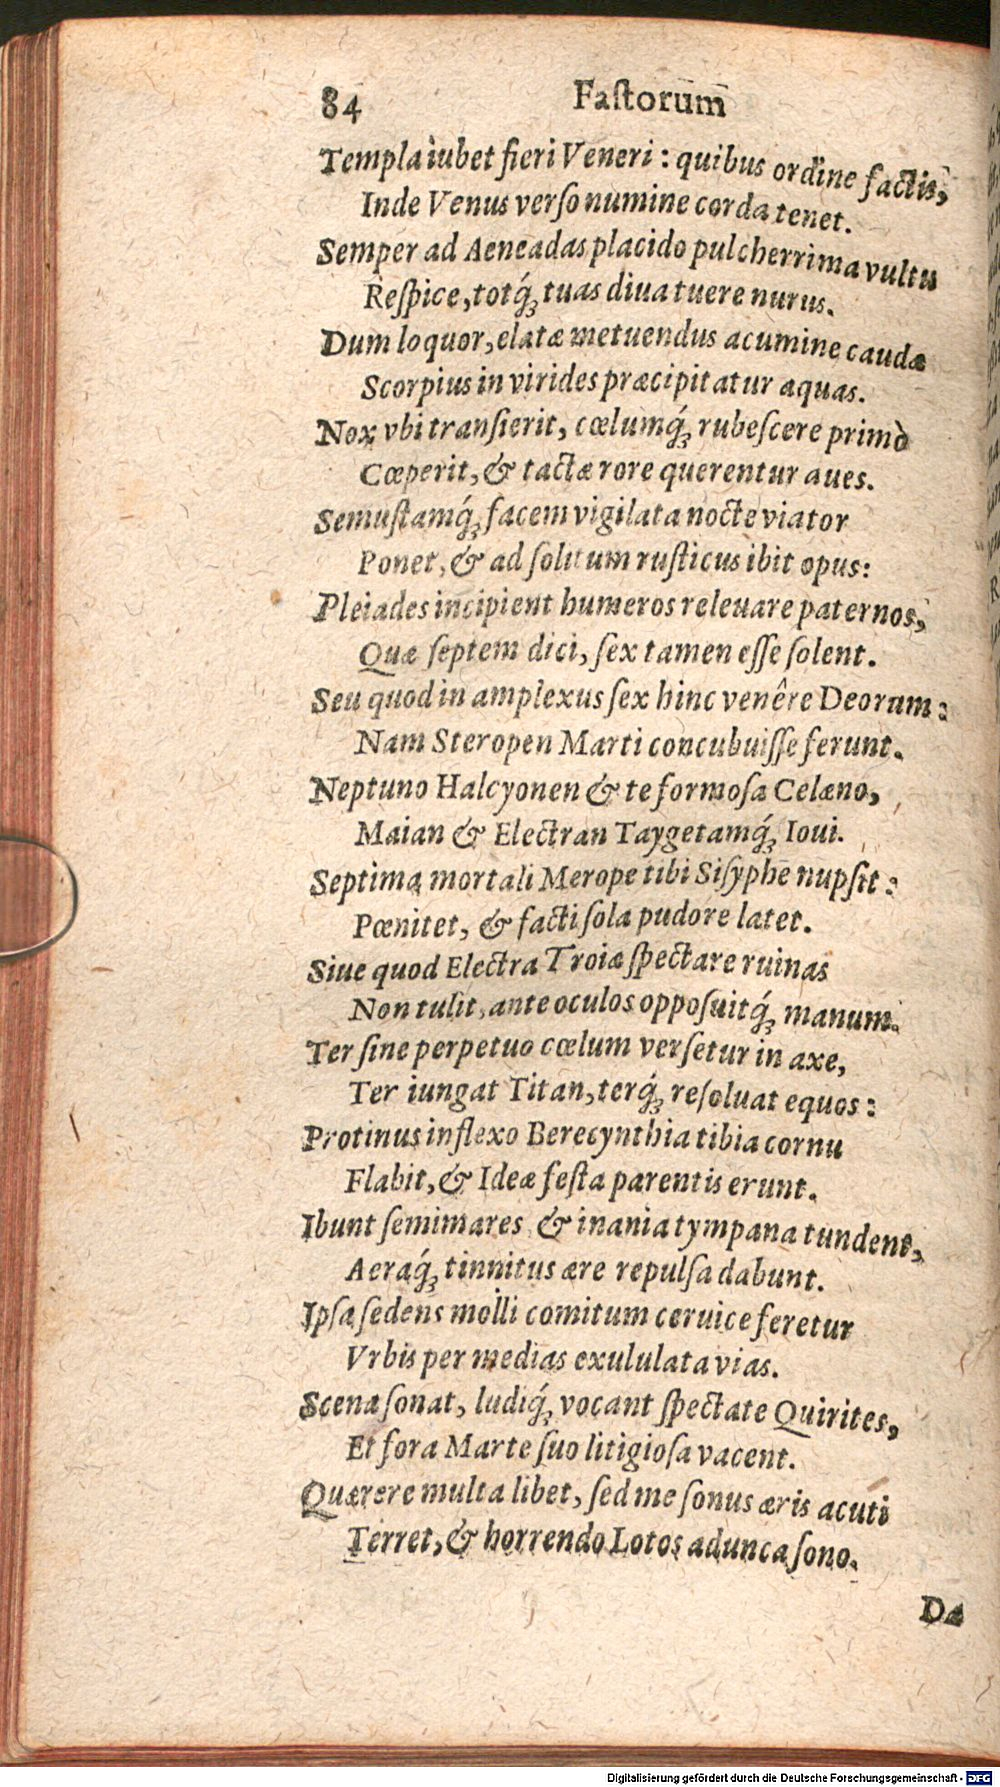 84 Faſtorum
Templa iubet fieri Veneri : quibus ordine factis,
Inde Venus verſo numine corda tenet.
Semper ad Aeneadas placido pulcherrima vultu
Reſpice, totq́ꝫ tuas diua tuere nurus.
Dum loquor, elatæ metuendus acumine caudæ
Scorpius in virides præcipitatur aquas.
Nox vbi tranſierit, cœlumq́ꝫ rubeſcere primò
Cœperit, & tactæ rore querentur aues.
Semuſtamq́ꝫ facem vigilata nocte viator
Ponet, & ad ſolitum ruſticus ibit opus:
Pleiades incipient humeros releuare paternos,
Quæ ſeptem dici, ſex tamen eſſe ſolent.
Seu quod in amplexus ſex hinc venêre Deorum :
Nam Steropen Marti concubuiſſe ferunt.
Neptuno Halcyonen & te formoſa Celæno,
Maian & Electran Taygetamq́ꝫ Ioui.
Septima mortali Merope tibi Siſyphe nupſit :
Pœnitet, & facti ſola pudore latet.
Siue quod Electra Troiæ ſpectare ruinas
Non tulit, ante oculos oppoſuitq́ꝫ manum.
Ter ſine perpetuo cœlum verſetur in axe,
Ter iungat Titan, terq́ꝫ reſoluat equos :
Protinus inflexo Berecynthia tibia cornu
Flabit, & Ideæ feſta parentis erunt.
Ibunt ſemimares & inania tympana tundent,
Aeraq́ꝫ tinnitus ære repulſa dabunt.
Ipſa ſedens molli comitum ceruice feretur
Vrbis per medias exululata vias.
Scena ſonat, ludiq́ꝫ vocant ſpectate Quirites,
Et fora Marte ſuo litigioſa vacent.
Quærere multa libet, ſed me ſonus æris acuti
Terret, & horrendo Lotos adunca ſono.
Da
Digitalisierung gefördert durch die Deutsche Forschungsgemeinschaft - DFG